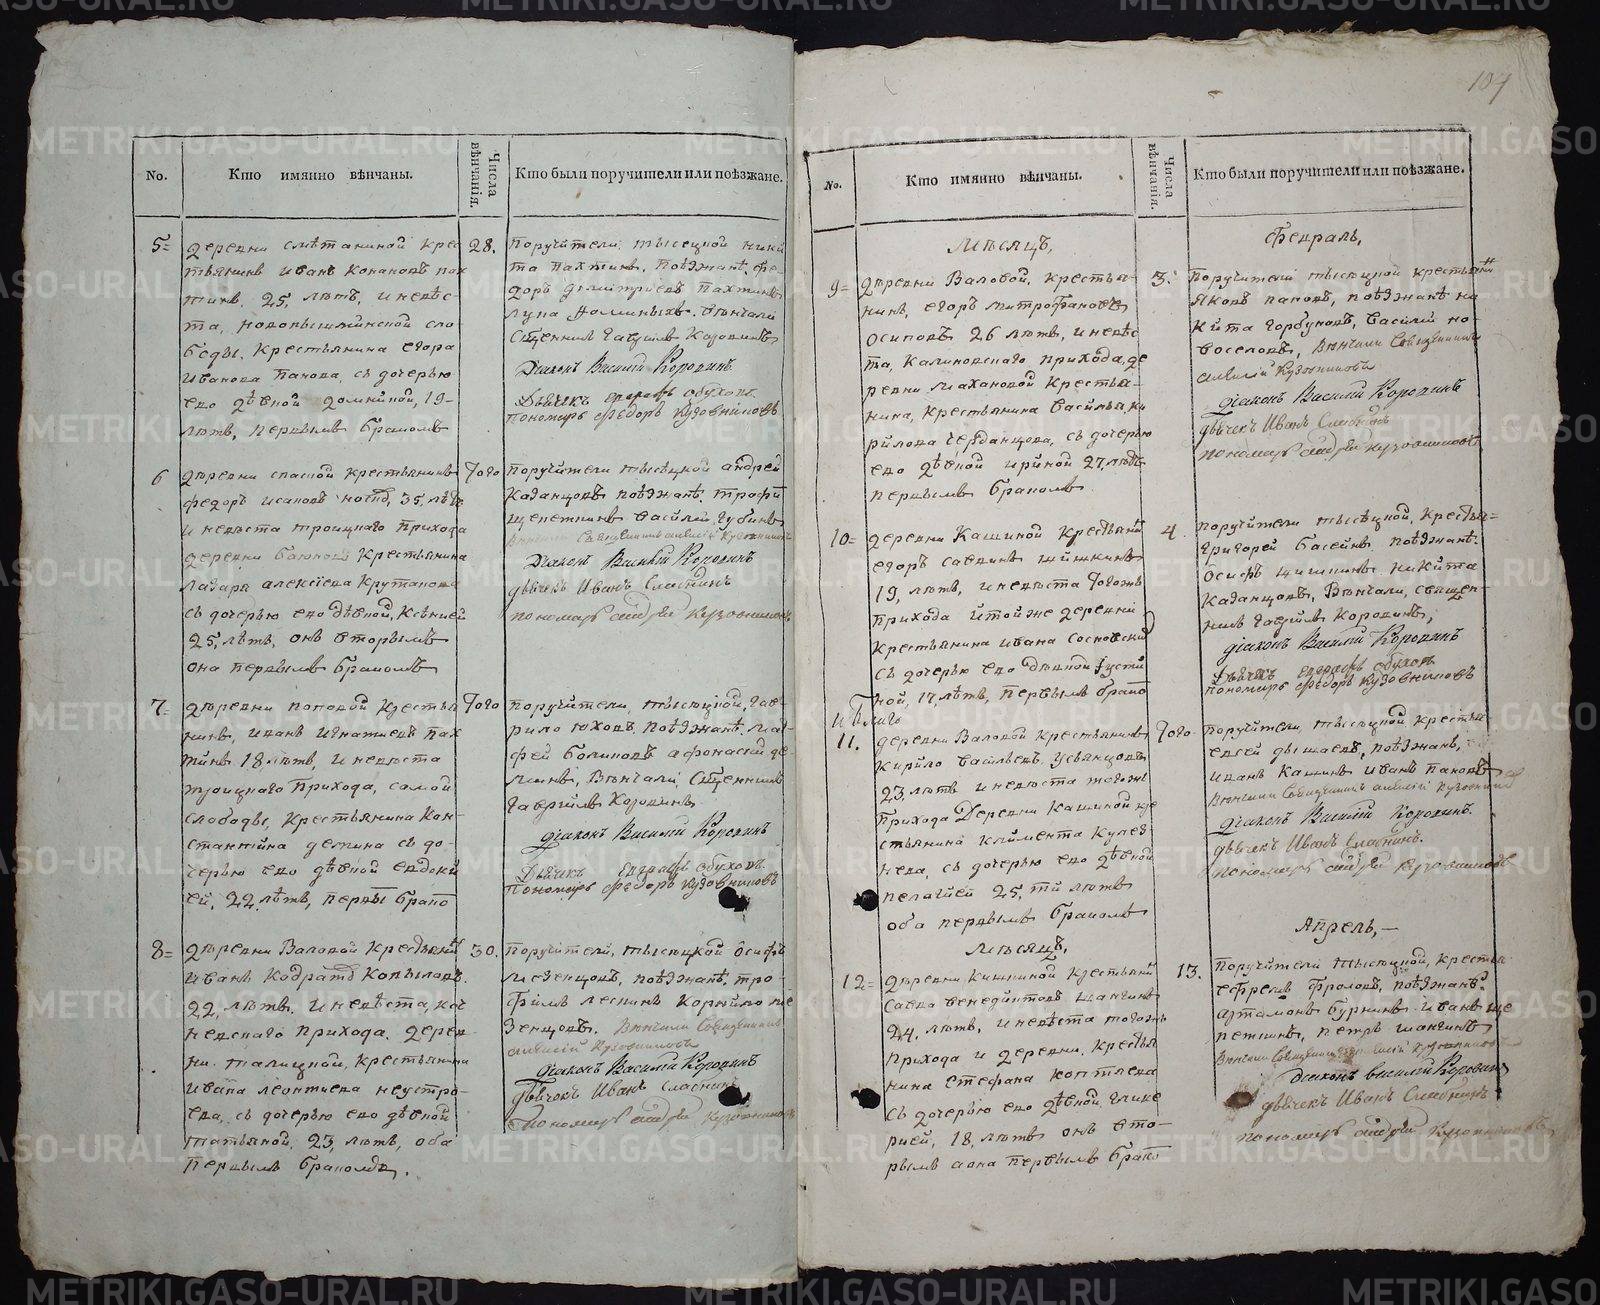 No.
Кто имянно вѣнчаны.
Числа вѣнчанія.
Кто были поручители или поѣзжане.
5=
деревни смѣтаниной крес
тьянинъ иванъ Конановъ пах
тинъ, 25, лѣтъ, и невѣс
та, новопышминской сло
боды, крестьянина егора
Иванова Панова, съ дочерью
ево дѣвкой домнꙋной, 19-
лѣтъ, первымъ бракомъ
28.
поручители, тысецкой ники
та пахтинъ, поѣзжанѣ, фе
доръ димитріевъ пахтинъ
лука
вѣнчали
Священникъ Гавріилъ Коровинъ
Діаконъ Василій Коровинъ
Дьячекъ обуховъ
пономарь Федоръ Кузовниковъ
6
деревни крестьянинъ
федоръ исаковъ 35, лѣтъ
и невѣста троицкаго прихода
деревни крестьянина
лазаря алексіева Крутакова
съ дочерью ево дѣвкой, Ксѣнией
25, лѣтъ, онъ вторымъ
она первымъ бракомъ
Того
поручители тысѣцкой андрей
Казанцовъ поѣзжанѣ, трофи
щепеткинъ василей Губинъ
Вѣнчали Священникъ алексій Кузовниковъ
Діаконъ Василій Коровинъ
дьячекъ Иванъ Сластинъ
пономарь андрей Кузовниковъ
7=
деревни поповой крестья
нинъ, иванъ игнатіевъ пах
тинъ 18, лѣтъ, и невѣста
троицкаго прихода, самой
слободы, крестьянина кон-
стантина демина съ до-
черью ево дѣвкой евдоки
ей, 22, лѣтъ, первы брако
Того
поручители, тысецкой, гав-
рило юховъ, поѣзжанѣ, мат
фей афонасій де
минъ, Вѣнчали, Священникъ
Гавріилъ Коровинъ
діаконъ Василій Коровинъ
Дьячекъ обуховъ
пономарь Федоръ Кузовниковъ
8=
деревни Валовой крестьянинъ
Иванъ Кодратъ Копыловъ
22, лѣтъ, и невѣста,
невскаго прихода, дерев
ни талицкой, крестьянина
ивана леонтиева неустро-
ева, съ дочерью ево дѣвкой
татьяной, 23, лѣтъ, оба
Первымъ бракомъ.
30.
поручители, тысѣцкой осипъ
мезенцовъ, поѣзжанѣ, тро-
фимъ корнило ме
зенцовъ. Вѣнчали Священникъ
алексій Кузовниковъ
діаконъ Василій Коровинъ
дьячекъ Иванъ Сластинъ
пономарь андрей Кузовниковъ
104
No.
Кто имянно вѣнчаны.
Числа вѣнчанія.
Кто были поручители или поѣзжане.
Мѣсяцъ,
Февраль,
9=
деревни Валовой, крестья-
нинъ, егоръ митрофановъ
осиповъ 26 лѣтъ, и невѣс
та, Калиновскаго прихода, де
ревни Махановой крестья-
нина, крестьянина василья, ки
рилова съ дочерью
ево дѣвкой ириной 27, лѣтъ
первымъ бракомъ
3.
поручители тысяцкой крестьянинъ
Яковъ пановъ, поѣзжанѣ ни
кита горбуновъ, василій но-
воселовъ, Вѣнчали Священникъ
алексій Кузовниковъ
діаконъ Василій Коровинъ
дьячекъ Иванъ Сластинъ
пономарь андрей Кузовниковъ
10=
деревни Кашиной крестьянинъ
егоръ савинъ шишкинъ
19, лѣтъ, и невѣста тогожъ
прихода и тойже деревни
крестьянина ивана сосновский
съ дочерью ево дѣвкой густи
ной, 17, лѣтъ, первымъ брако
4.
поручители тысѣцкой, кресть=
григорей басейнъ поѣзжанѣ:
осипъ шишкинъ никита
Казанцовъ, Вѣнчали, священ-
никъ гавріилъ Коровинъ,
діаконъ Василій Коровинъ
Дьячекъ обуховъ
пономарь Федоръ Кузовниковъ
11.
деревни Валовой крестьянинъ
Кирило васильевъ Усьянцовъ
23, лѣтъ и невѣста тогожъ
прихода Деревни Кашиной кре
стьянина климента
нева, съ дочерью ево дѣвкой
пелагией 25, ти лѣтъ
оба первымъ бракомъ
Того
поручители, тысяцкой крестья
евсей дышаевъ, поѣзжанѣ,
иванъ Кашинъ иванъ пановъ
Вѣнчали Священникъ алексій Кузовниковъ
діаконъ Василій Коровинъ.
дьячекъ Иванъ Сластинъ.
пономарь андрей Кузовниковъ
Мѣсяцъ,
Апрель,—
12=
деревни Кашиной крестьянин
савва венедиктовъ шангинъ
24, лѣтъ, и невѣста тогожъ
прихода и деревни, кресть
нина стефана коптяева
съ дочерью ево дѣвкой глике
рией, 18, лѣтъ онъ вто-
рымъ аона первымъ брако
13.
поручители тысяцкой, крестья
ефремъ фроловъ, поѣзжанѣ:
артамонъ бурнинъ иванъ ще
петкинъ, петръ шангинъ
Вѣнчали Священникъ алексій Кузовниковъ
Діаконъ василій Коровинъ
дьячекъ Иванъ Сластинъ
пономарь андрей Кузовниковъ
METRIKI.GASO-URAL.RU